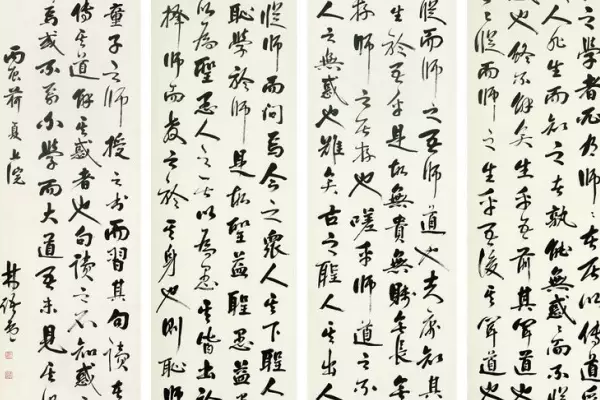 之學者必有師師者所以傳道受
人非生而知之者孰能無惑惑而不從
也終不解矣生乎吾前其聞道也
從而師之生乎吾後其聞道也
從而師之吾師道也夫庸知其
生於吾乎是故無貴無賤無長無
存師之所存也嗟乎師道之不
人之無惑也難矣古之聖人其出人
從師而問焉今之衆人其下聖人
恥學於師是故聖益聖愚益愚
以爲聖愚人之所以爲愚其皆出於
擇師而教之於其身也則恥師
童子之師授之書而習其句讀者
傳其道解其惑者也句讀之不知惑之
焉或不焉小學而大道吾未見其
丙寅荷夏上浣
林